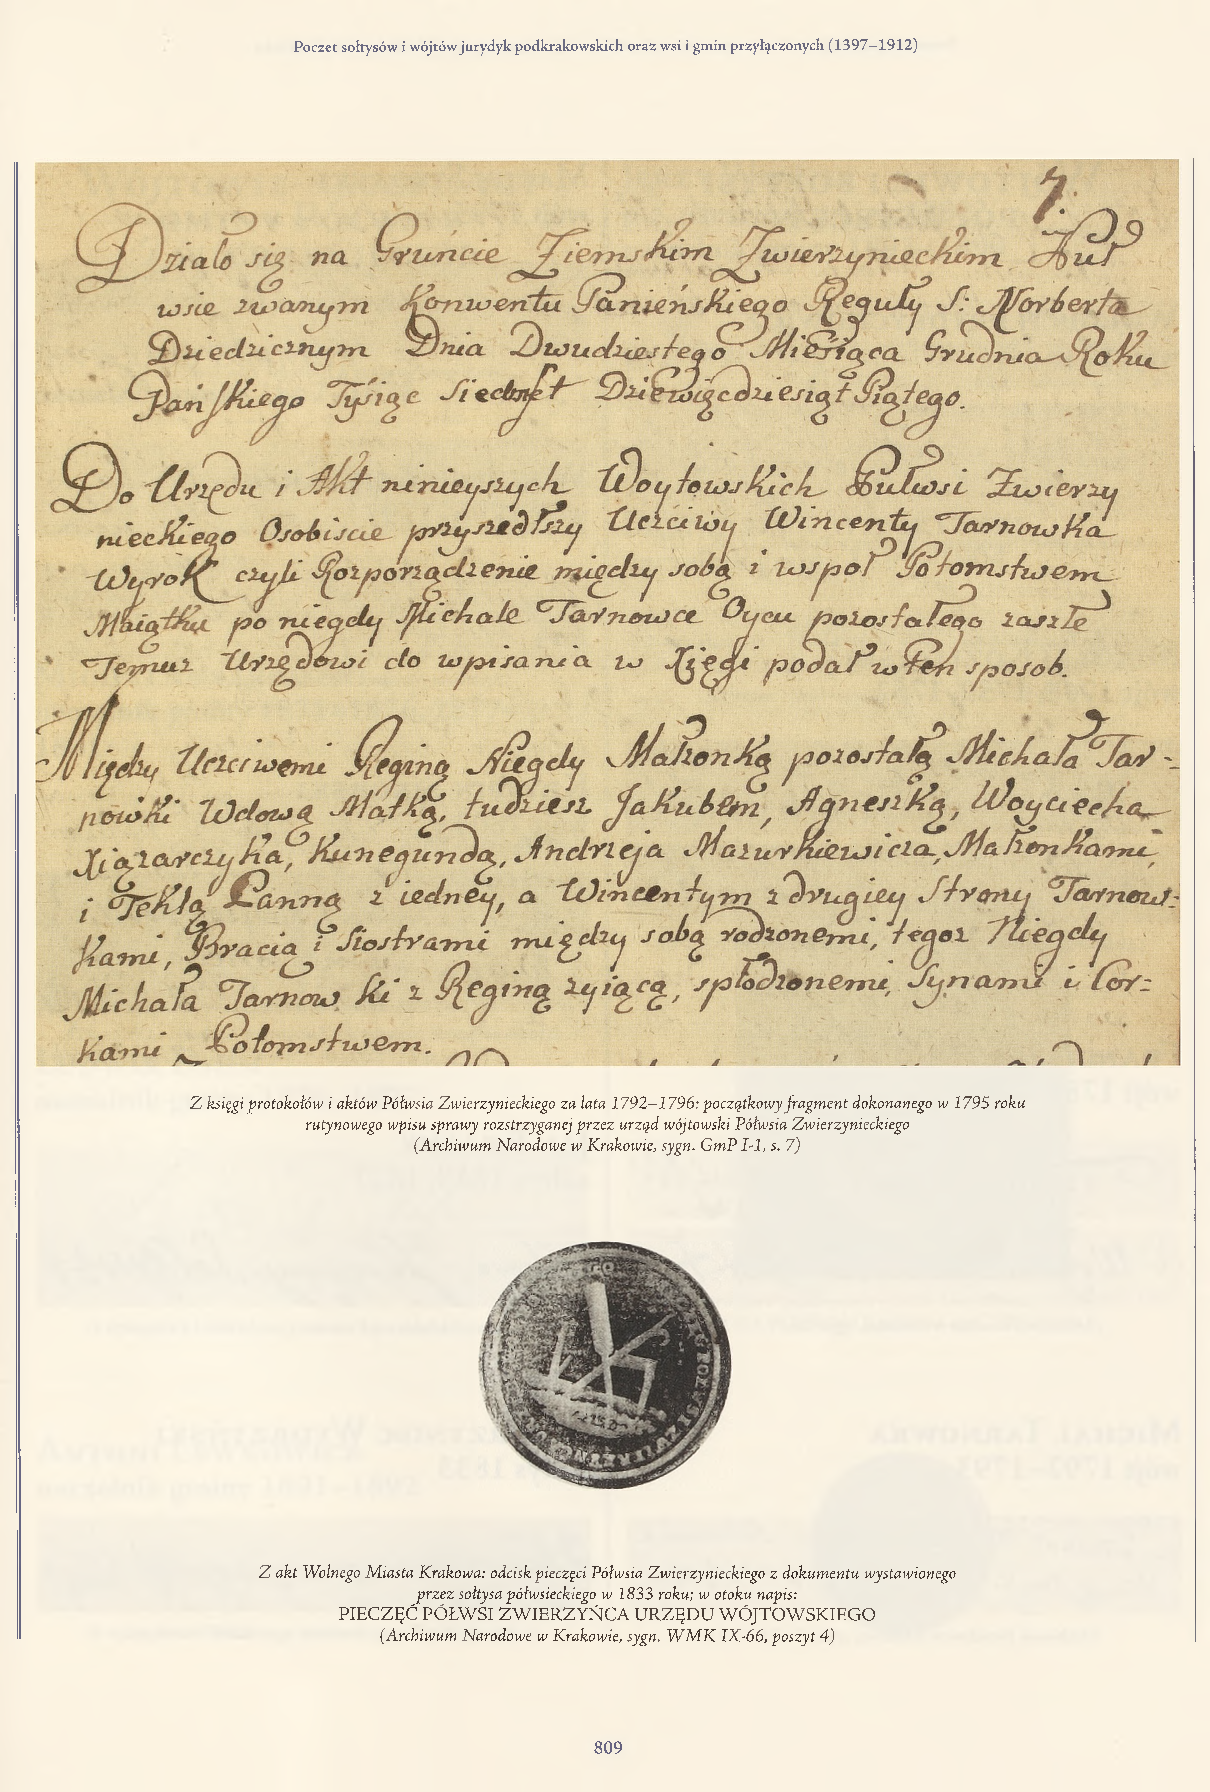 Poczet sołtysów i wójtów jurydyk podkrakowskich oraz wsi i gmin przyłączonych (1397–1912)
7.
Działo się na Gruńcie Ziemskim Zwierzynieckim Puł
wsie zwanym Konwentu Panieńskiego Reguły S: Norberta
Dziedzicznym Dnia Dwudziestego Miesiąca Grudnia Roku
Pańskiego Tysiąc Siedmset Dziewięcdziesiąt Piątego.
Do Urzędu i Akt ninieyszych Woytowskich Pułwsi Zwierzy
nieckiego Osobiscie przyszedłszy Uczciwy Wincenty Tarnowka
Wyrok czyli Rozporządzenie między sobą i wspoł Potomstwem
Maiątku po niegdy Michale Tarnowce Oycu pozostałego zaszłe
Temuz Urzędowi do wpisania w Xięgi podał w ten sposob.
Między Uczciwemi Reginą Niegdy Małzonką pozostałą Michała Tar-
nowki Wdową Matką, tudziesz Jakubem, Agneszką, Woyciecha
Xiązarczyka, Kunegundą, Andrzeja Mazurkiewicza, Małzonkami,
i Teklą Panną z iedney, a Wincentym z drugiey Strony Tarnow=
kami, Bracią i Siostrami między sobą rodzonemi, tegoz Niegdy
Michała Tarnow ki z Reginą zyiącą, spłodzonemi, Synami i Cor=
kami Potomstwem.
Z księgi protokołów i aktów Półwsia Zwierzynieckiego za lata 1792–1796: początkowy fragment dokonanego w 1795 roku
rutynowego wpisu sprawy rozstrzyganej przez urząd wójtowski Półwsia Zwierzynieckiego
(Archiwum Narodowe w Krakowie, sygn. GmP I-1, s. 7)
Z akt Wolnego Miasta Krakowa: odcisk pieczęci Półwsia Zwierzynieckiego z dokumentu wystawionego
przez sołtysa półwsieckiego w 1833 roku; w otoku napis:
PIECZĘĆ PÓŁWSI ZWIERZYŃCA URZĘDU WÓJTOWSKIEGO
(Archiwum Narodowe w Krakowie, sygn. WMK IX-66, poszyt 4)
809